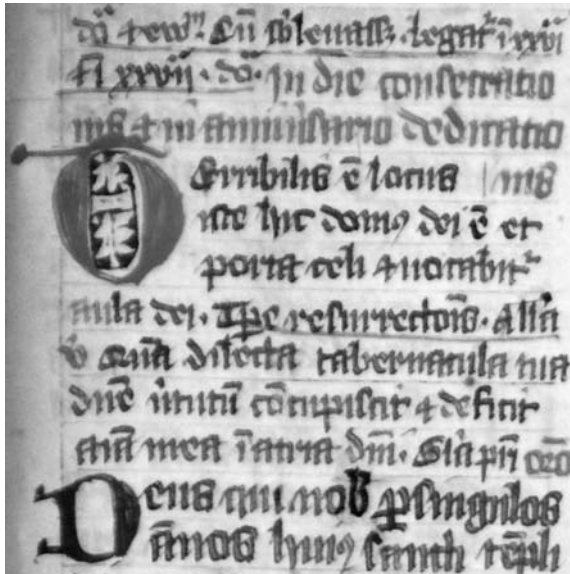 dō t ew̄. Cū sb'leuass. legat̄ ī xxvi
fi xxvij. dō. In die consecratio
nis t in anniu'sario dedicatio
Terribilis ē locus nis
iste hic domꝰ dei ē et
porta celi t uocabit̄
aula dei. Tpe resurrectōis. All'a
v̾ Quā dilecta tabernacula tua
dn̄e u'tutū cōcupiscit t deficit
aīa mea ī atria dn̄i. Gl'a pr̄i orō
Deus qui nob̄ ꝑ singulos
ānos huiꝰ sancti tēpli